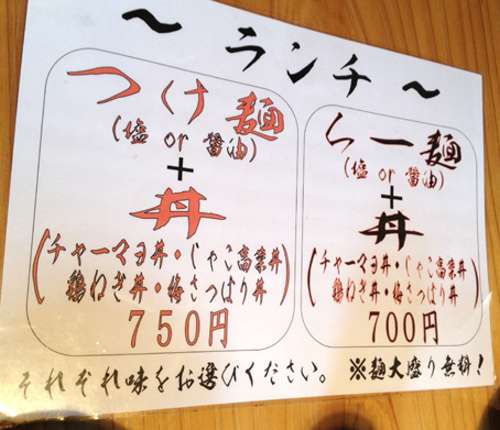 〜 ランチ 〜
つけ麺
(塩 or 醤油)
+
丼
(チャーマヨ丼・じゃこ高菜丼
鶏ねぎ丼・梅さっぱり丼)
750円
らー麺
(塩 or 醤油)
+
丼
(チャーマヨ丼・じゃこ高菜丼
鶏ねぎ丼・梅さっぱり丼)
700円
それぞれ味をお選びください。
※麺大盛り無料!